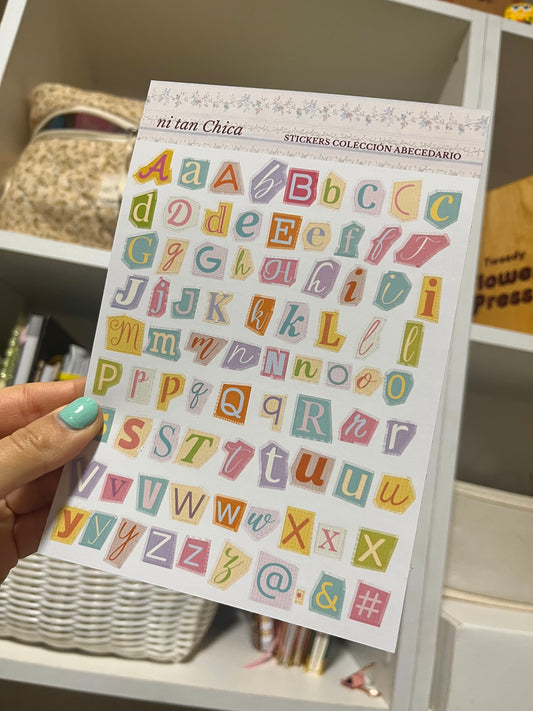 ni tan Chica
STICKERS COLECCIÓN ABECEDARIO
A a A b B b c C c
d D e e E e f f F
G g G g H h i i i
J j J K k k L l l
M m m n N n o o o
P p p q Q q R r r
s s S T t t u u u
V V V W W w X X X
y y y Z Z z @ : & #
Tweedy
Flower
Press